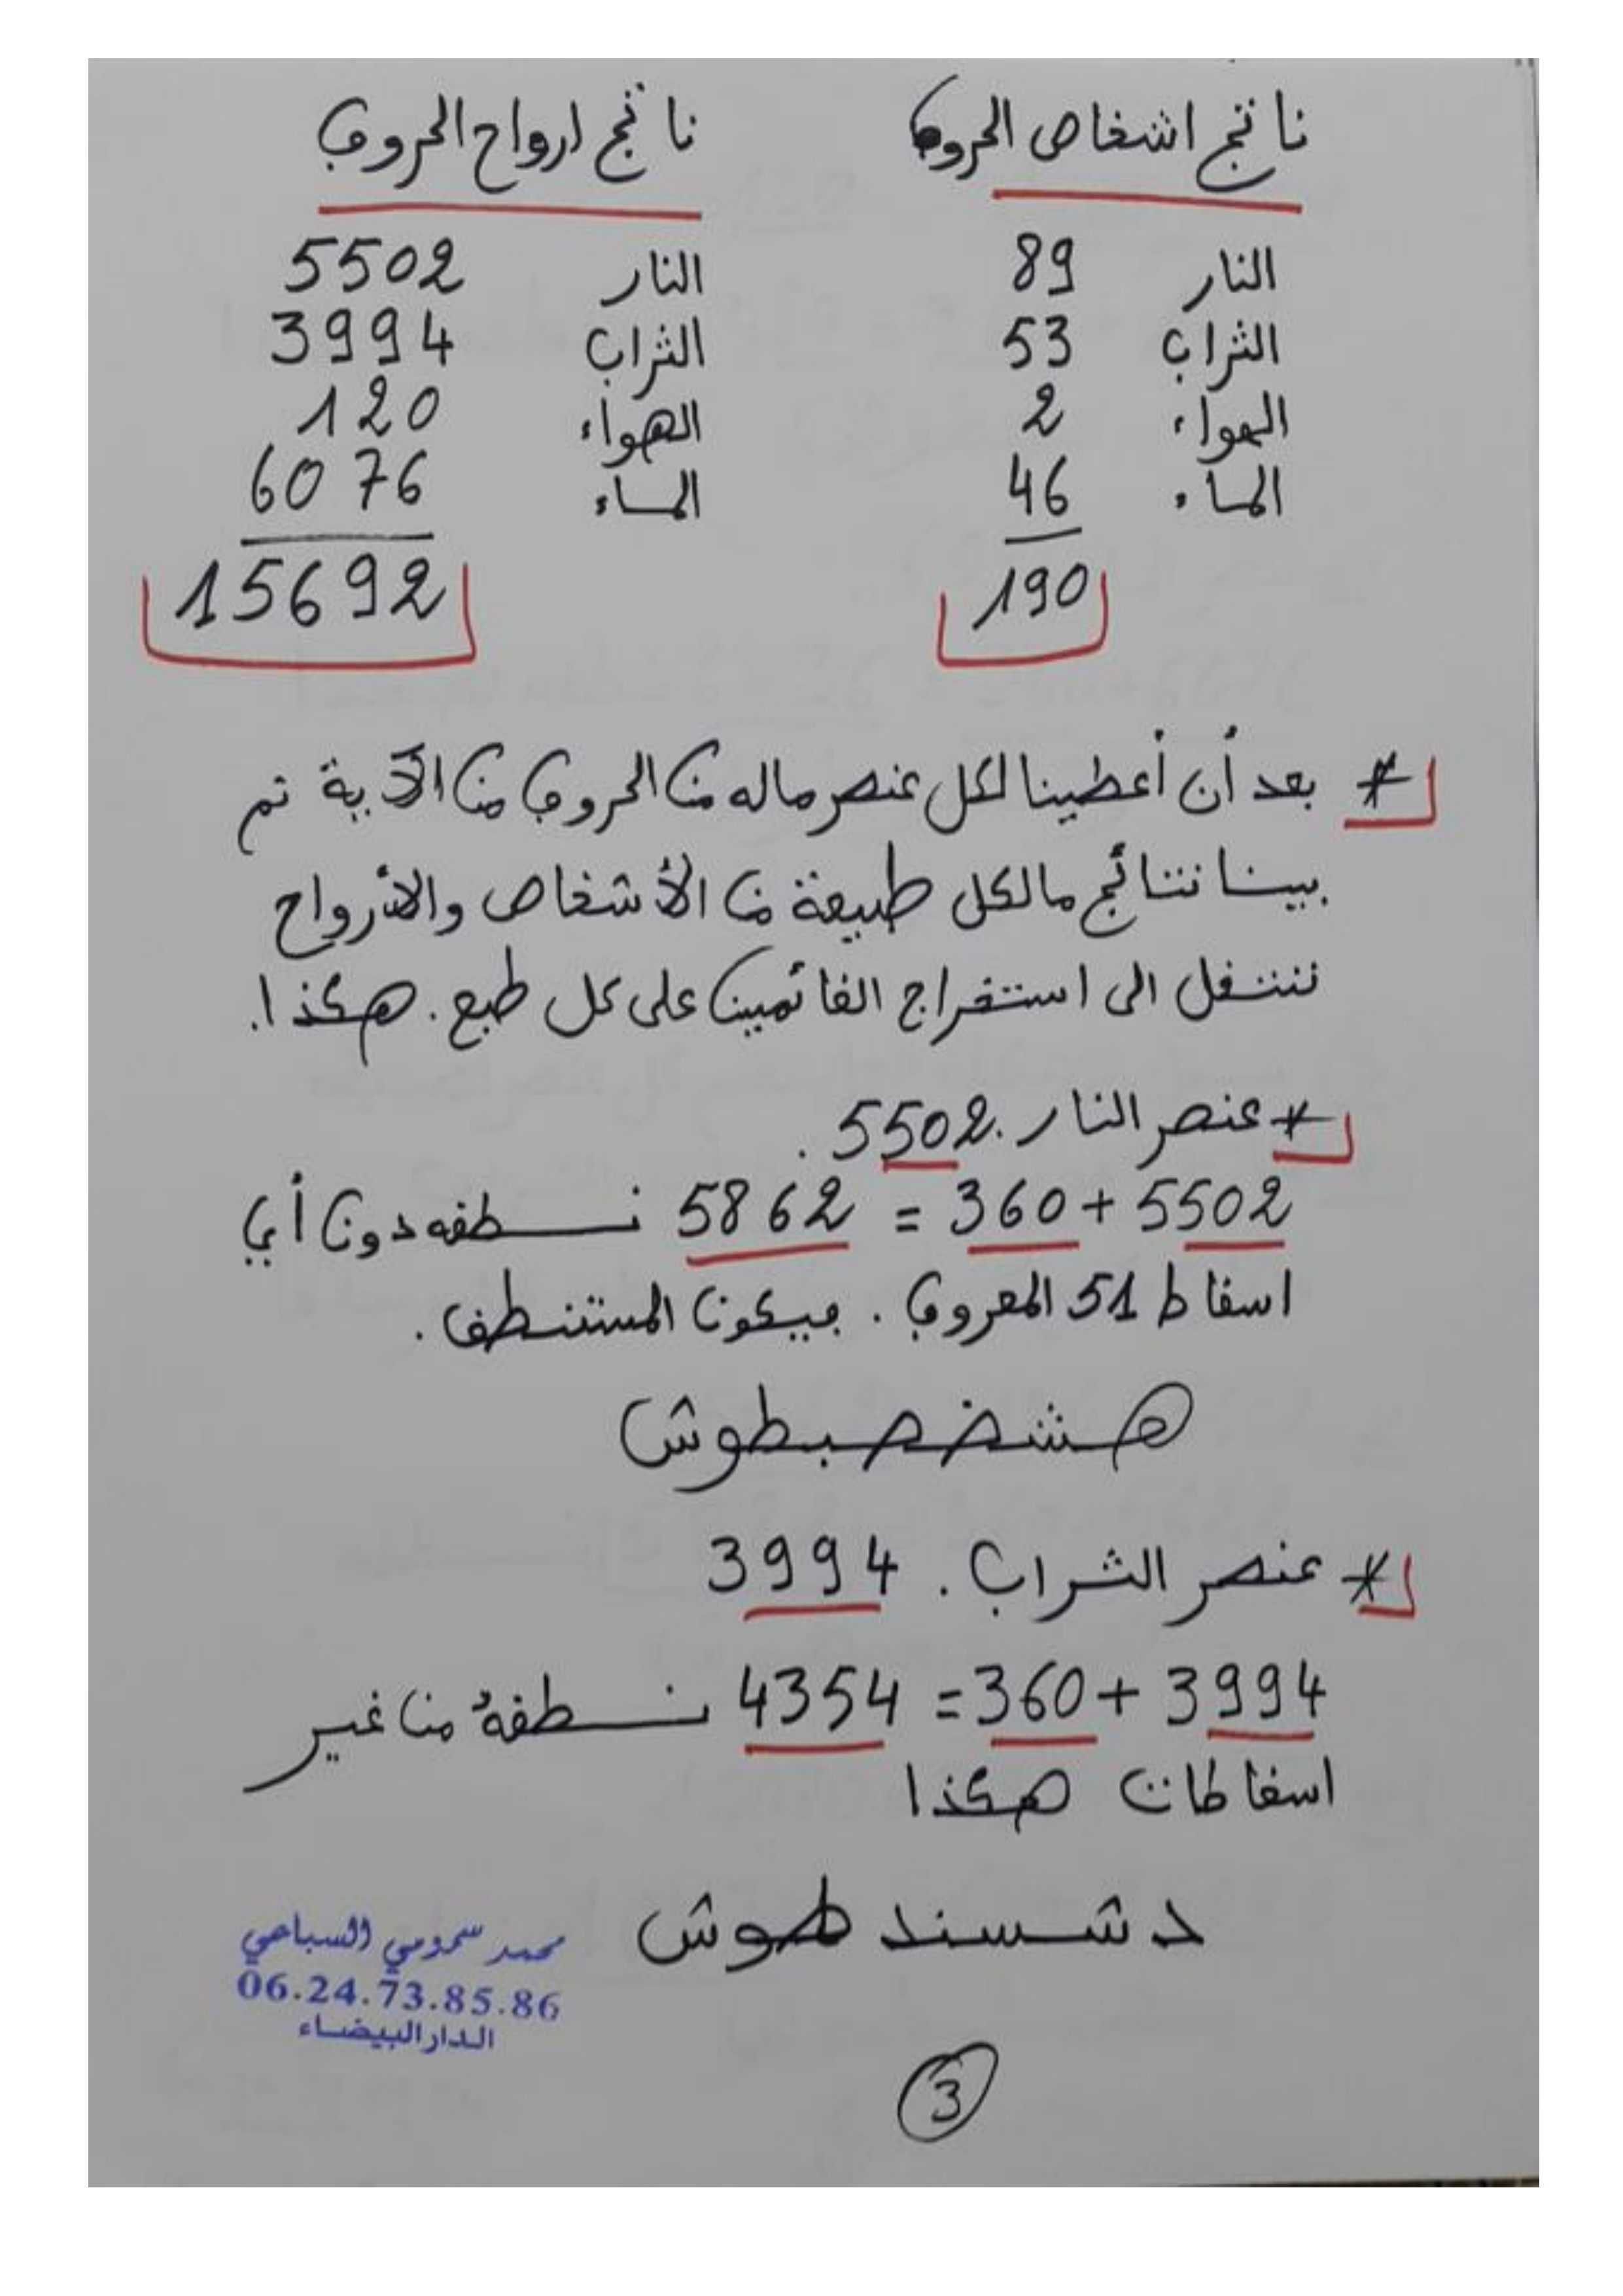 ناتج اشخاص الحروف
النار 89
التراب 53
الهواء 2
الماء 46
190
ناتج ارواح الحروف
النار 5502
التراب 3994
الهواء 120
الماء 6076
15692
* بعد أن أعطينا لكل عنصر ماله من الحروف من الآية تم
بينا نتائج مالكل طبيعة من الأشخاص والأرواح
ننتقل الى استخراج القائمين على كل طبع. هكذا.
* عنصر النار. 5502.
5502 + 360 = 5862 نسطقه دون أي
اسقاط 51 المعروف. فيكون المستنطق.
هشخصبطوش
* عنصر التراب. 3994
3994 + 360 = 4354 نسطقهُ من غير
اسقاطات هكذا
دشسندطوش
محمد سمومي السباعي
06.24.73.85.86
الدار البيضاء
3